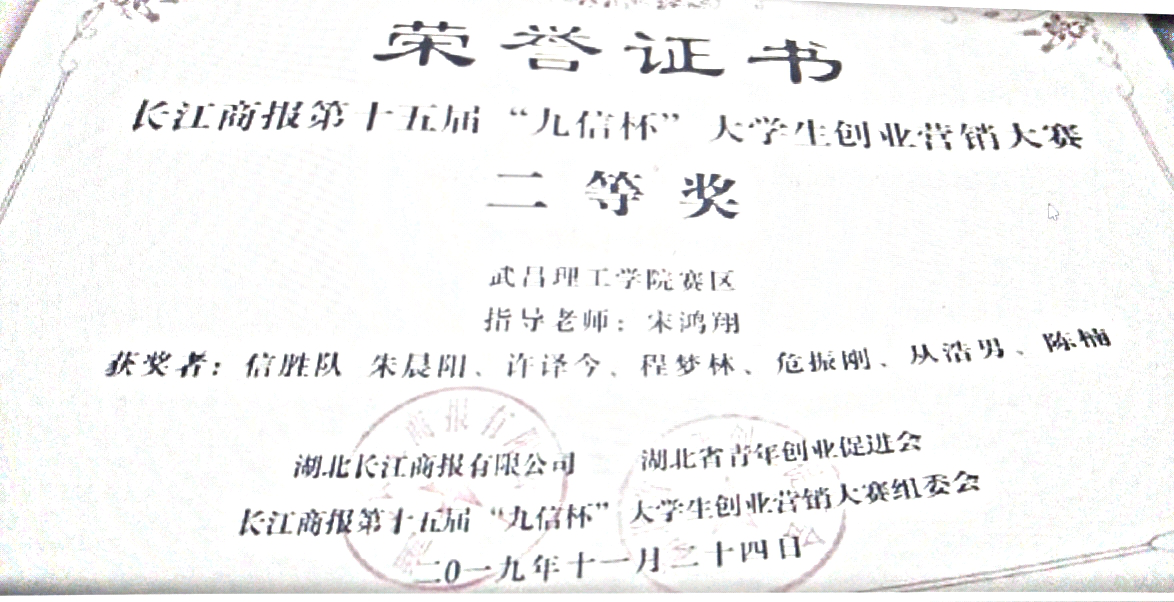 荣誉证书
长江商报第十五届“九信杯”大学生创业营销大赛
二等奖
武昌理工学院赛区
指导老师：宋鸿翔
获奖者：信胜队 朱晨阳、许译今、程梦林、危振刚、从浩男、陈楠
湖北长江商报有限公司 湖北省青年创业促进会
长江商报第十五届“九信杯”大学生创业营销大赛组委会
二0一九年十一月二十四日